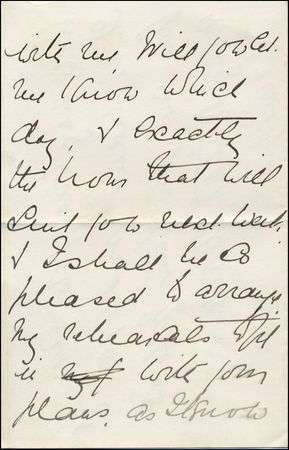 with me Will you let
me know which
day, & exactly
the hour that will
suit you next week,
& I shall be so
pleased to arrange
my rehearsals to fit
in my with your
plans. as I know